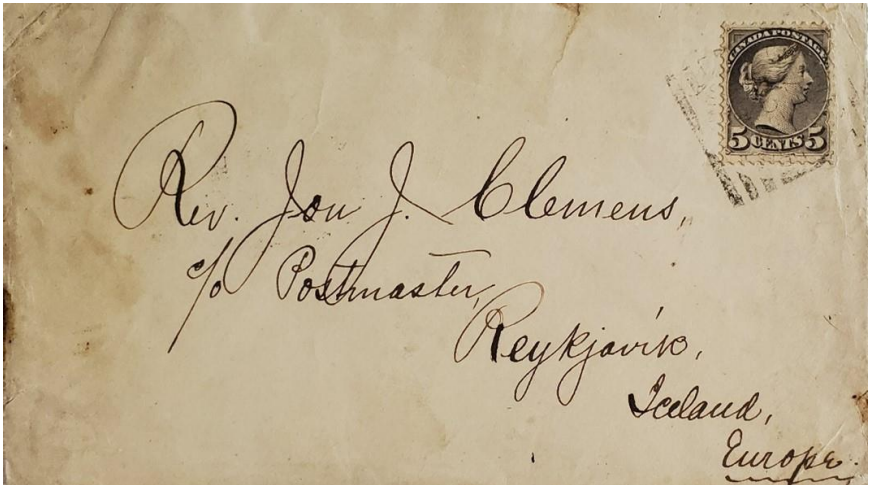 CANADA POSTAGE
5 CENTS 5
Rev. Jon J. Clemens,
c/o Postmaster,
Reykjavik,
Iceland,
Europe.